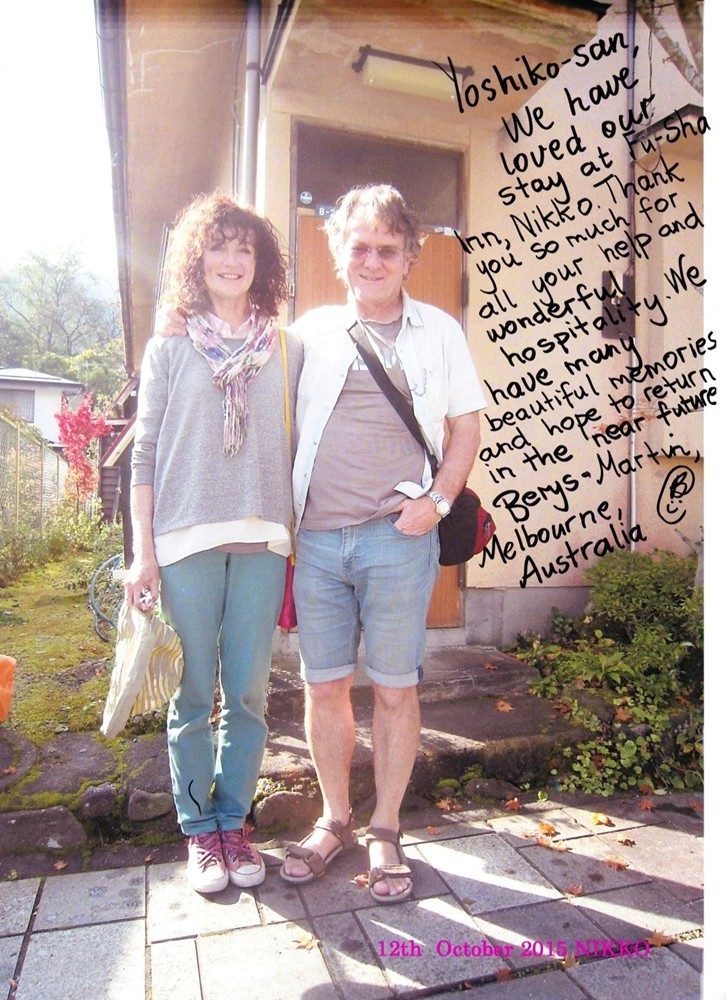 Yoshiko-san,
We have
loved our
stay at Fu-Sha
Inn, Nikko. Thank
you so much for
all your help and
wonderful
hospitality. We
have many
beautiful memories
and hope to return
in the near future
Berys + Martin,
Melbourne,
Australia
12th October 2015 NIKKO